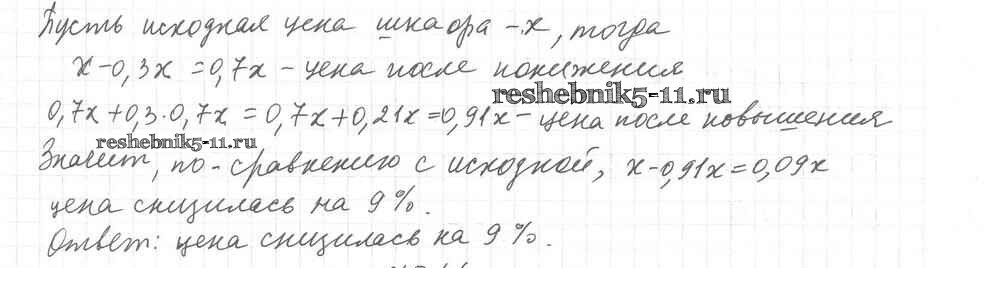 Пусть исходная цена шкафа – x, тогда
x – 0,3x = 0,7x – цена после понижения
reshebnik5-11.ru
0,7x + 0,3 · 0,7x = 0,7x + 0,21x = 0,91x – цена после повышения
reshebnik5-11.ru
Значит, по-сравнению с исходной, x – 0,91x = 0,09x
цена снизилась на 9 %.
Ответ: цена снизилась на 9 %.